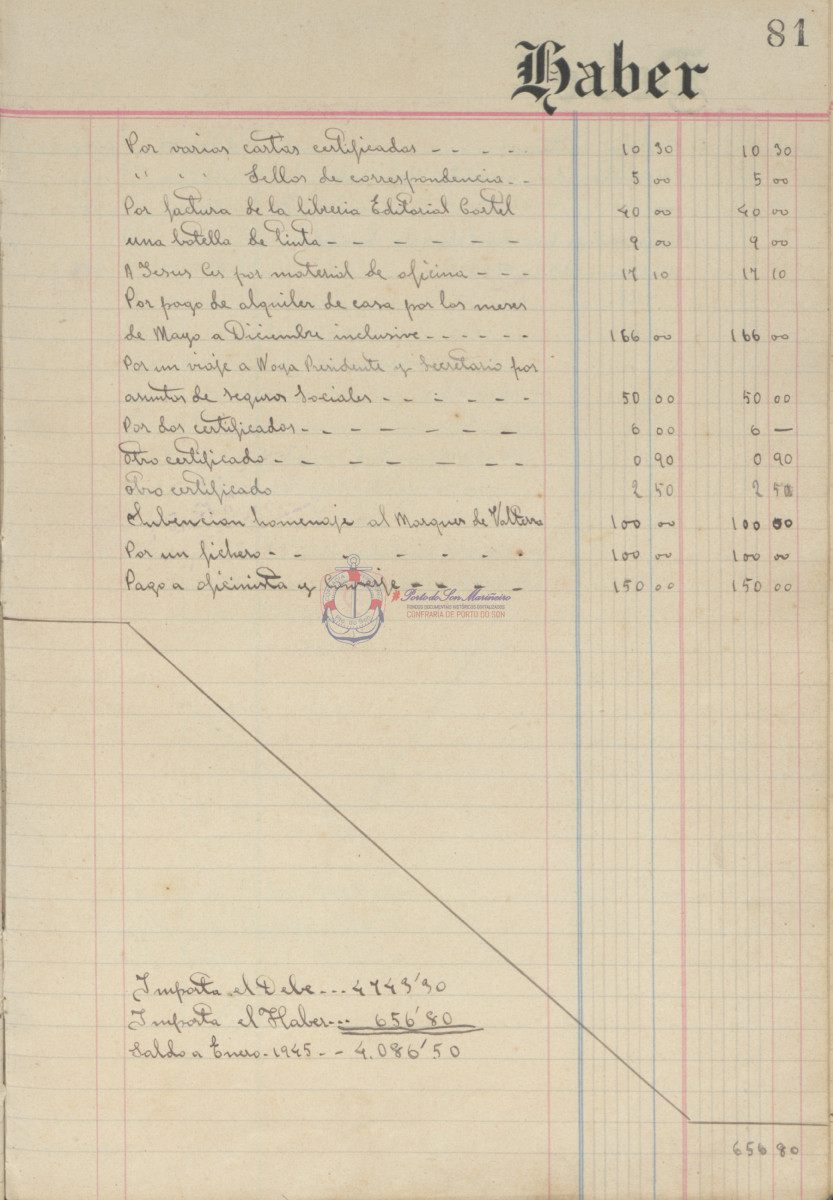 81
Haber
Por varios cartas certificadas - - - - 10 30 10 30
" " " Sellos de correspondencia - - 5 00 5 00
Por factura de la libreria Editorial Cortel 40 00 40 00
una botella de tinta - - - - - - 9 00 9 00
A Jesus Ces por material de oficina - - - 17 10 17 10
Por pago de alquiler de casa por los meses
de Mayo a Diciembre inclusive - - - - - - 166 00 166 00
Por un viaje a Noya Presidente y Secretario por
asuntos de seguros Sociales - - - - - - 50 00 50 00
Por dos certificados - - - - - - - 6 00 6 —
otro certificado - - - - - - - 0 90 0 90
otro certificado 2 50 2 50
Subencion homenaje al Marques de Valterra 100 00 100 00
Por un fichero - - - - - - - 100 00 100 00
Pago a oficinista y Conserje - - - - 150 00 150 00
Porto do Son Mariñeiro
FONDOS DOCUMENTAIS HISTÓRICOS DIXITALIZADOS
CONFRARÍA DE PORTO DO SON
Importa el Debe - - - 4743'30
Importa el Haber - - - 656'80
Saldo a Enero - 1945 - - 4.086'50
656 80